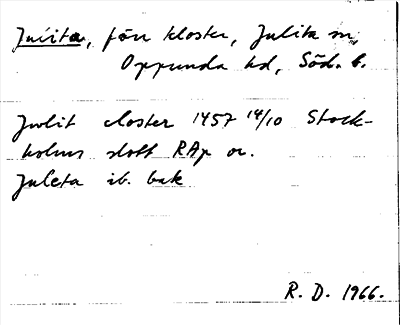 Julita, förr kloster, Julita sn,
Oppunda hd, Söd. l.
Jwlit closter 1457 14/10 Stock-
holms slott RAp or.
Juleta ib. bak
R. D. 1966.